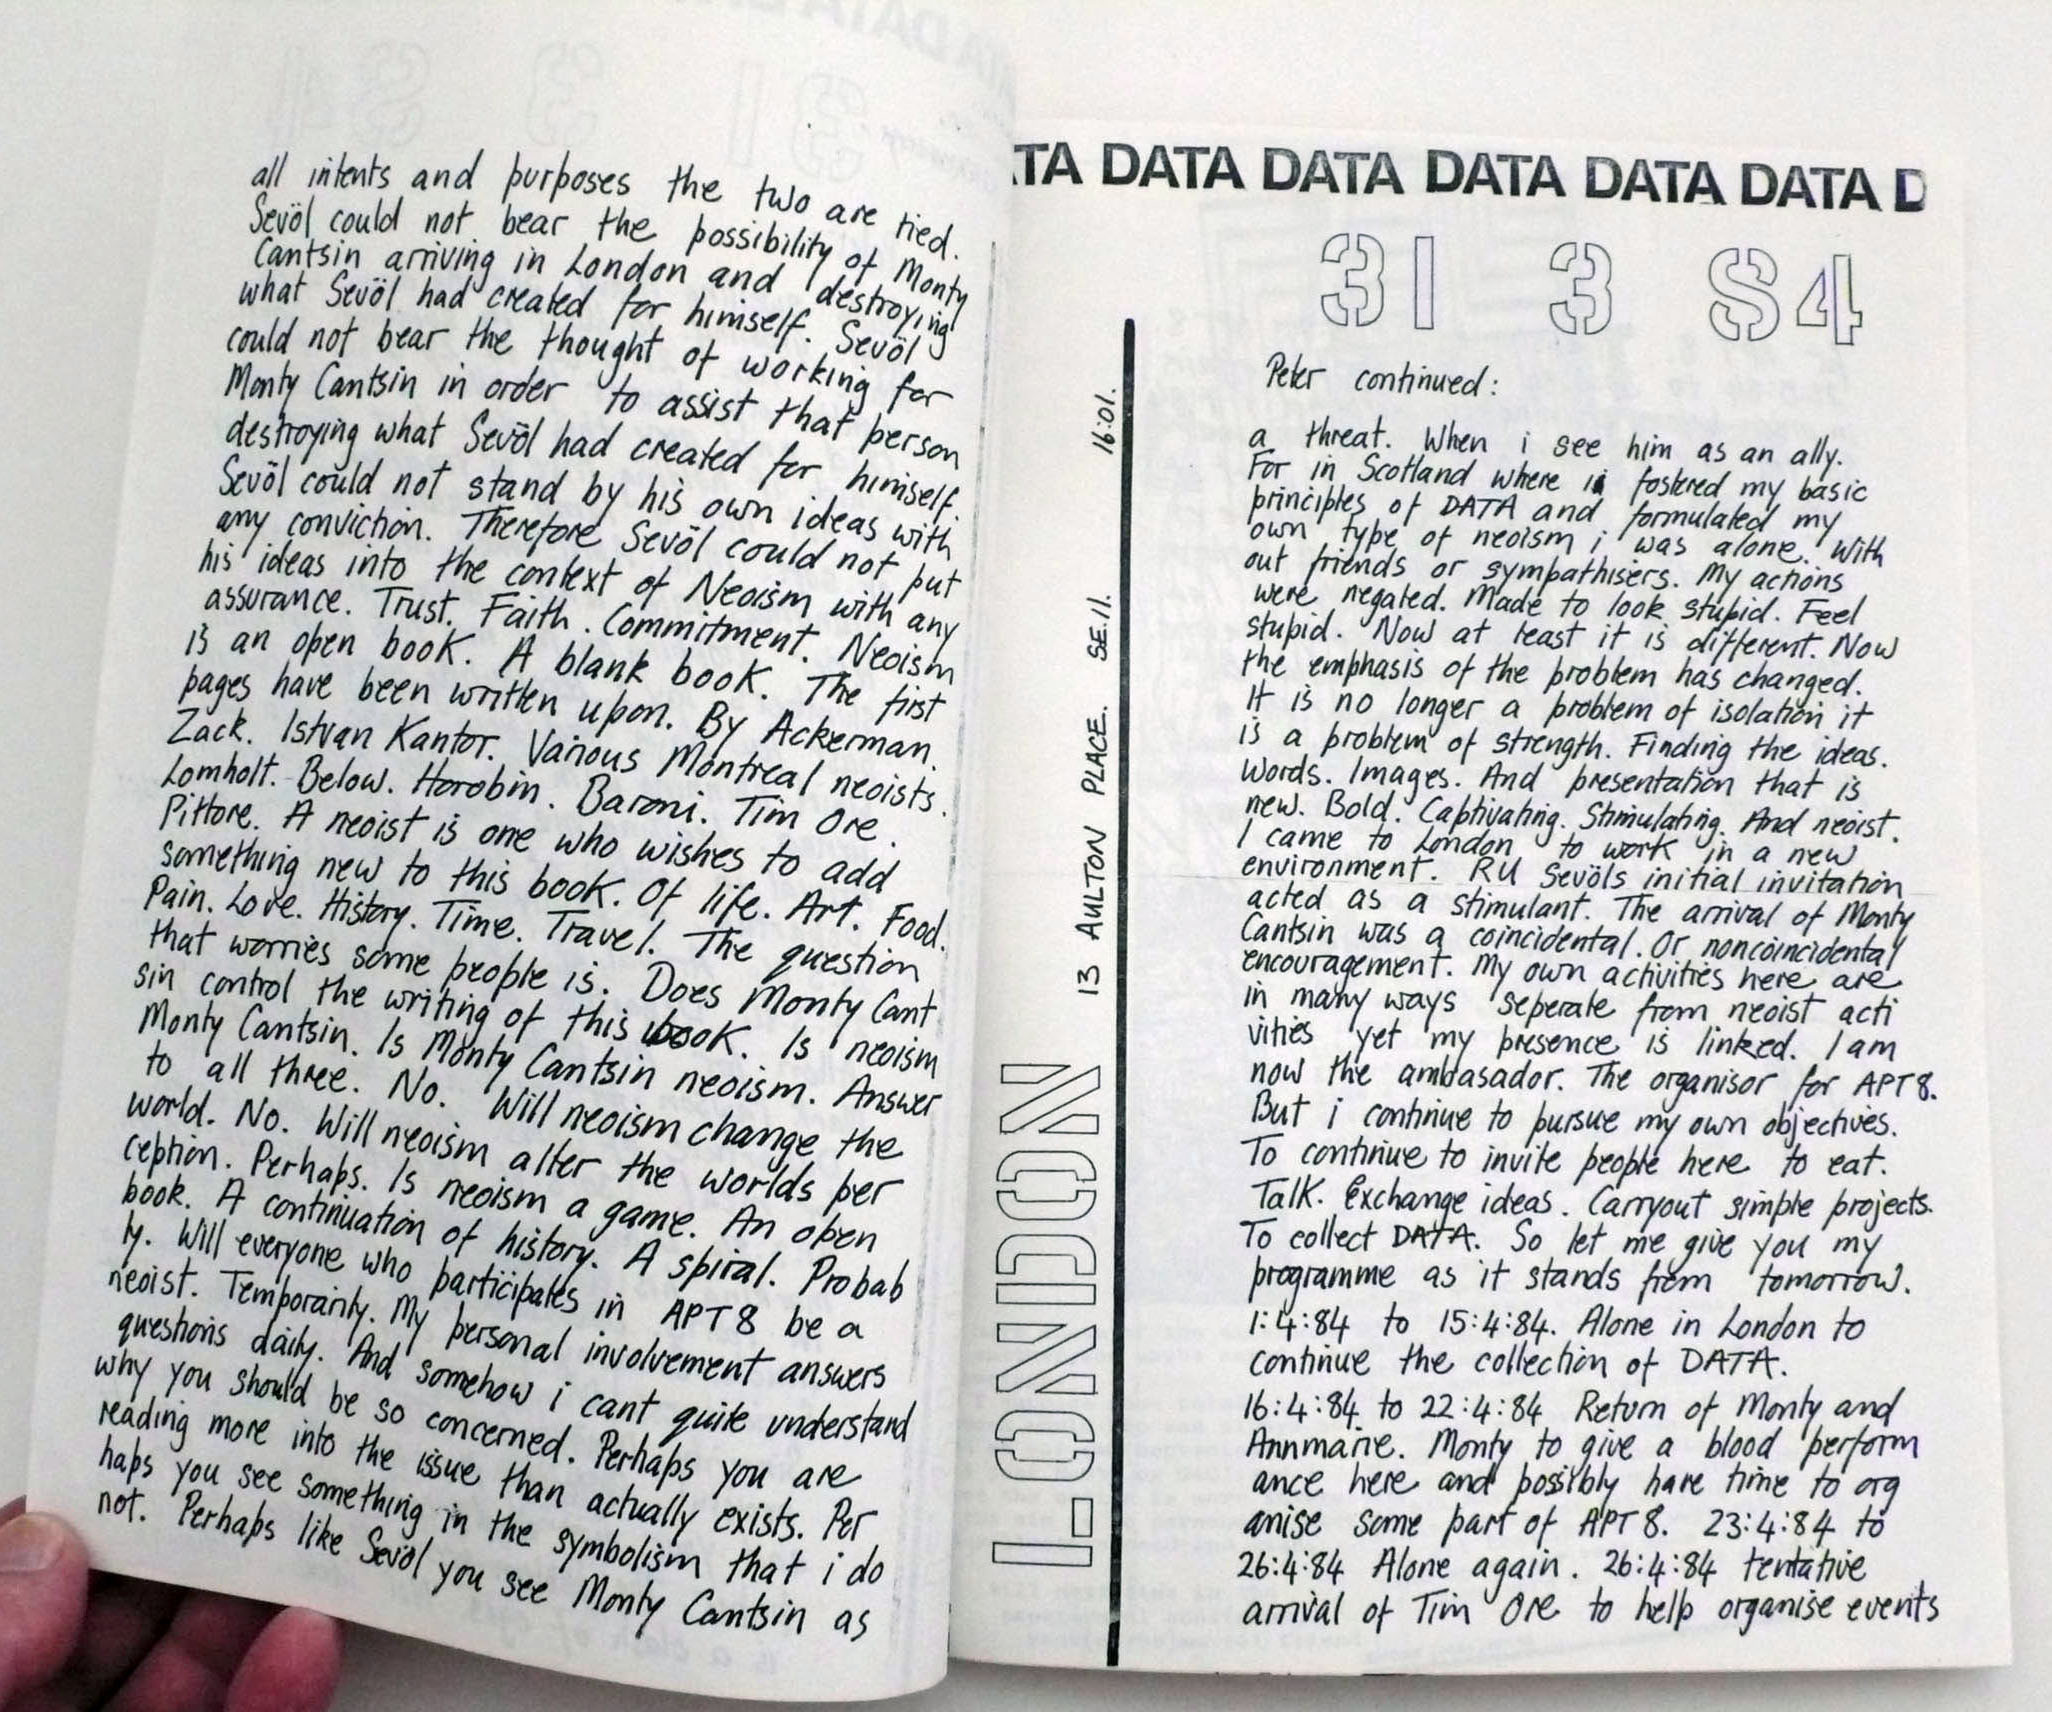 all intents and purposes the two are tied.
Sevöl could not bear the possibility of Monty
Cantsin arriving in London and destroying
what Sevöl had created for himself. Sevöl
could not bear the thought of working for
Monty Cantsin in order to assist that person
destroying what Sevöl had created for himself.
Sevöl could not stand by his own ideas with
any conviction. Therefore Sevöl could not put
his ideas into the context of Neoism with any
assurance. Trust. Faith. Commitment. Neoism
is an open book. A blank book. The first
pages have been written upon. By Ackerman.
Zack. Istvan Kantor. Various Montreal neoists.
Lomholt. Below. Horobin. Baroni. Tim Ore.
Pittore. A neoist is one who wishes to add
something new to this book. Of life. Art. Food.
Pain. Love. History. Time. Travel. The question
that worries some people is. Does Monty Cant
sin control the writing of this book. Is neoism
Monty Cantsin. Is Monty Cantsin neoism. Answer
to all three. No. Will neoism change the
world. No. Will neoism alter the worlds per
ception. Perhaps. Is neoism a game. An open
book. A continuation of history. A spiral. Probab
ly. Will everyone who participates in APT 8 be a
neoist. Temporarily. My personal involvement answers
questions daily. And somehow i cant quite understand
why you should be so concerned. Perhaps you are
reading more into the issue than actually exists. Per
haps you see something in the symbolism that i do
not. Perhaps like Sevöl you see Monty Cantsin as
TA DATA DATA DATA DATA DATA D
31 3 84
LONDON 13 AULTON PLACE. SE.11. 16:01.
Peter continued:
a threat. When i see him as an ally.
For in Scotland where i fostered my basic
principles of DATA and formulated my
own type of neoism i was alone. With
out friends or sympathisers. My actions
were negated. Made to look stupid. Feel
stupid. Now at least it is different. Now
the emphasis of the problem has changed.
It is no longer a problem of isolation it
is a problem of strength. Finding the ideas.
Words. Images. And presentation that is
new. Bold. Captivating. Stimulating. And neoist.
I came to London to work in a new
environment. RU Sevöls initial invitation
acted as a stimulant. The arrival of Monty
Cantsin was a coincidental. Or noncoincidental
encouragement. My own activities here are
in many ways seperate from neoist acti
vities yet my presence is linked. I am
now the ambasador. The organisor for APT 8.
But i continue to pursue my own objectives.
To continue to invite people here to eat.
Talk. Exchange ideas. Carryout simple projects.
To collect DATA. So let me give you my
programme as it stands from tomorrow.
1:4:84 to 15:4:84. Alone in London to
continue the collection of DATA.
16:4:84 to 22:4:84 Return of Monty and
Annmarie. Monty to give a blood perform
ance here and possibly have time to org
anise some part of APT 8. 23:4:84 to
26:4:84 Alone again. 26:4:84 tentative
arrival of Tim Ore to help organise events